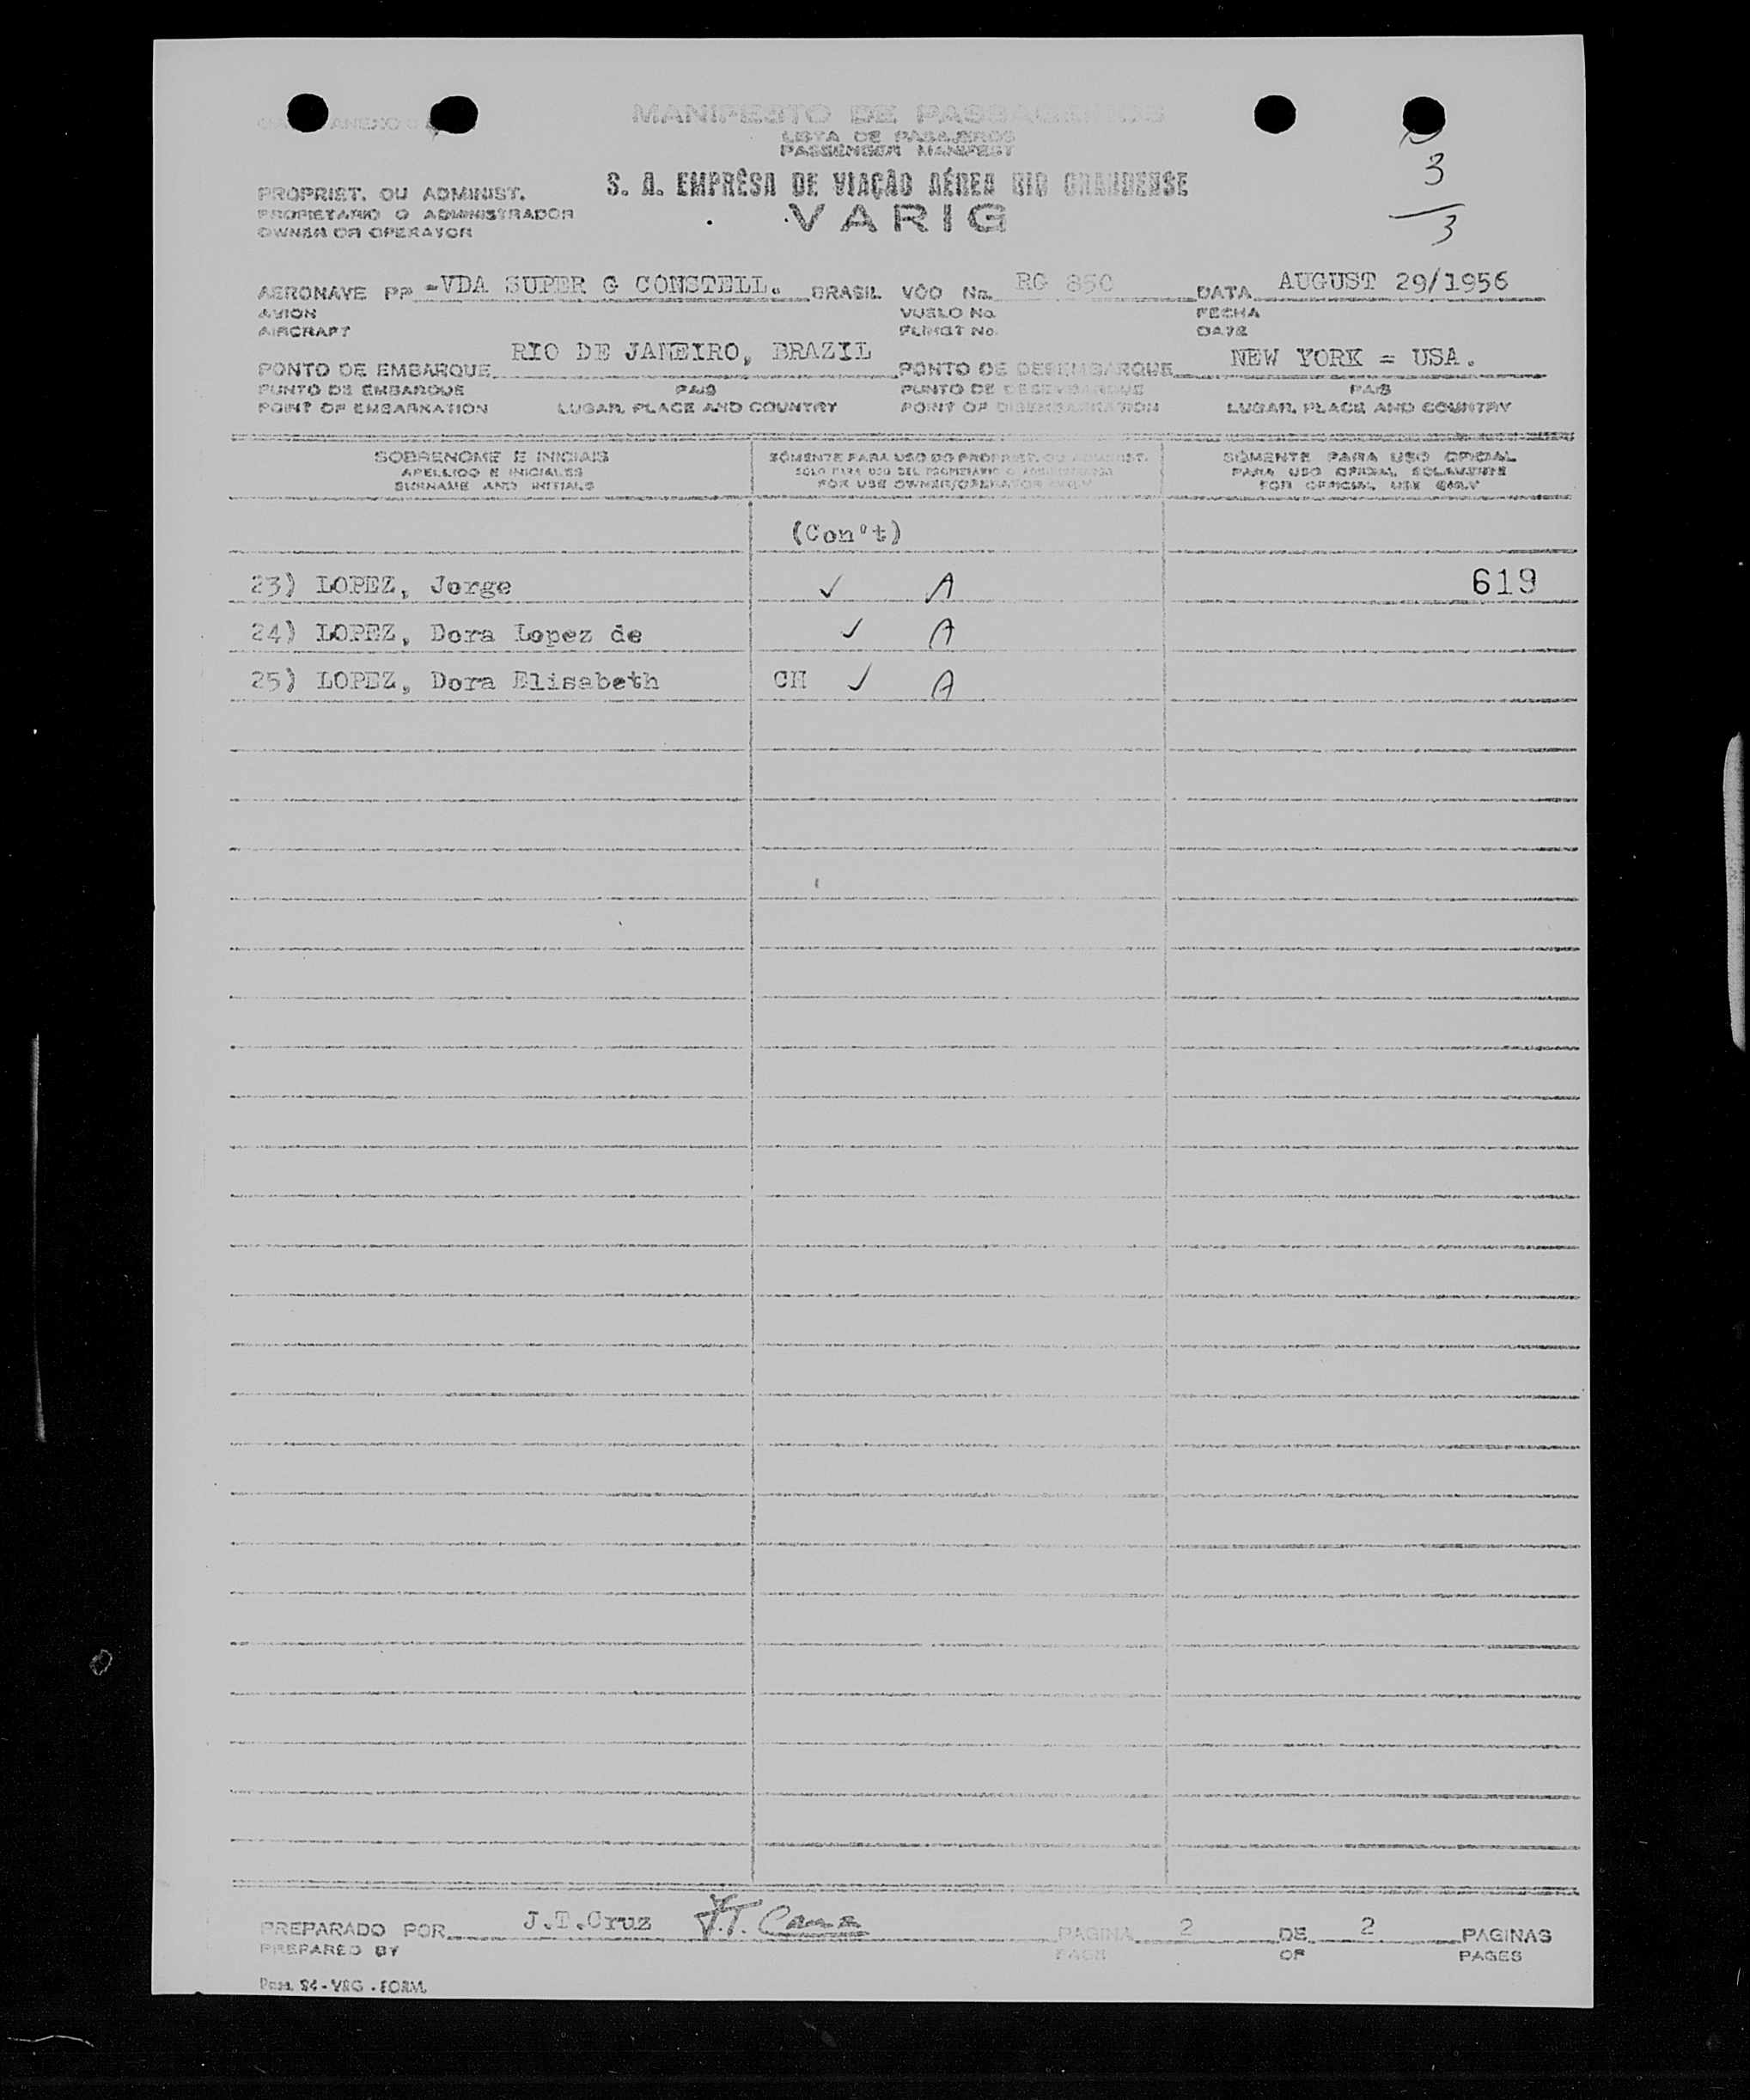 ANEXO
MANIFESTO DE PASSAGEIROS
LISTA DE PASAJEROS
PASSENGER MANIFEST
3
3
PROPRIET. OU ADMINIST.
PROPIETARIO O ADMINISTRADOR
OWNER OR OPERATOR
S. A. EMPRÊSA DE VIAÇÃO AÉREA RIO GRANDENSE
VARIG
AERONAVE PP -VDA SUPER G CONSTELL. BRASIL VÔO No. RG 850 DATA AUGUST 29/1956
AVION VUELO No. FECHA
AIRCRAFT FLIGHT No. DATE
PONTO DE EMBARQUE RIO DE JANEIRO, BRAZIL PONTO DE DESEMBARQUE NEW YORK = USA.
PUNTO DE EMBARQUE PAIS PUNTO DE DESEMBARQUE PAIS
POINT OF EMBARKATION LUGAR, PLACE AND COUNTRY POINT OF DISEMBARKATION LUGAR, PLACE AND COUNTRY
SOBRENOME E INICIAIS SÒMENTE PARA USO DO PROPRIET. OU ADMINIST. SÒMENTE PARA USO OFICIAL
APELLIDO E INICIALES SOLO PARA USO DEL PROPIETARIO O ADMINISTRADOR PARA USO OFICIAL SOLAMENTE
SURNAME AND INITIALS FOR USE OWNER/OPERATOR ONLY FOR OFFICIAL USE ONLY
(Con't)
23) LOPEZ, Jorge ✓ A 619
24) LOPEZ, Dora Lopez de ✓ A
25) LOPEZ, Dora Elisabeth CH ✓ A
PREPARADO POR J.T.Cruz J.T. Cruz PAGINA 2 DE 2 PAGINAS
PREPARED BY PAGE OF PAGES
VRG - FORM.